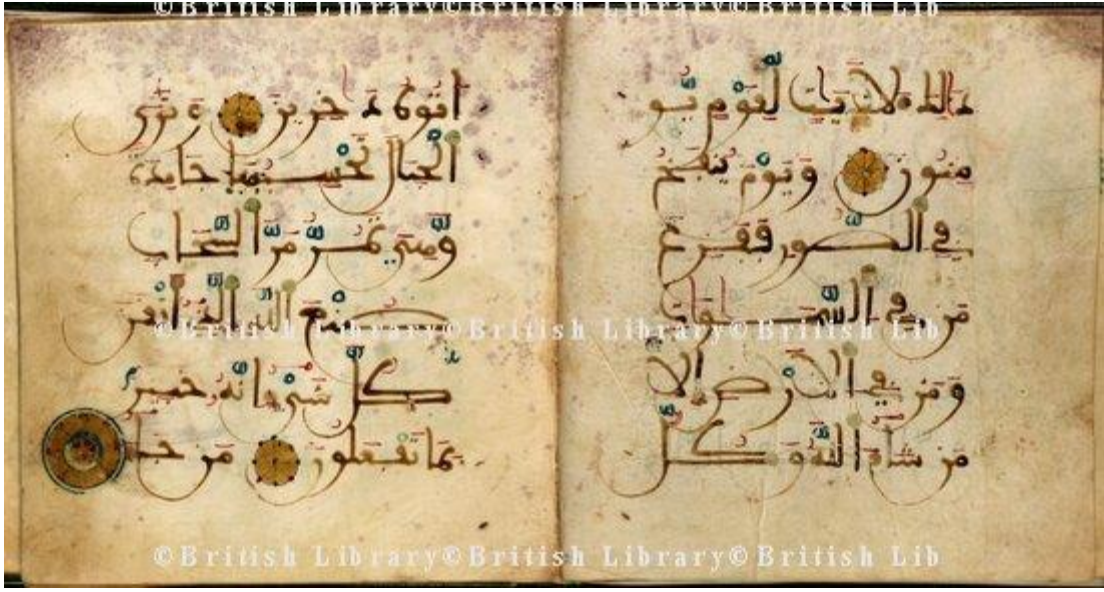 ©British Library©British Library©British Lib
ذلك لآيت لقوم يو
منون ويوم ينفخ
في الصور ففزع
من في السموت
ومن في الارض الا
من شاء الله وكل
اتوه دخرين وترى
الجبال تحسبها جامدة
وهي تمر مر السحاب
صنع الله الذي اتقن
كل شيء انه خبير
بما تفعلون من جا
©British Library©British Library©British Lib
©British Library©British Library©British Lib